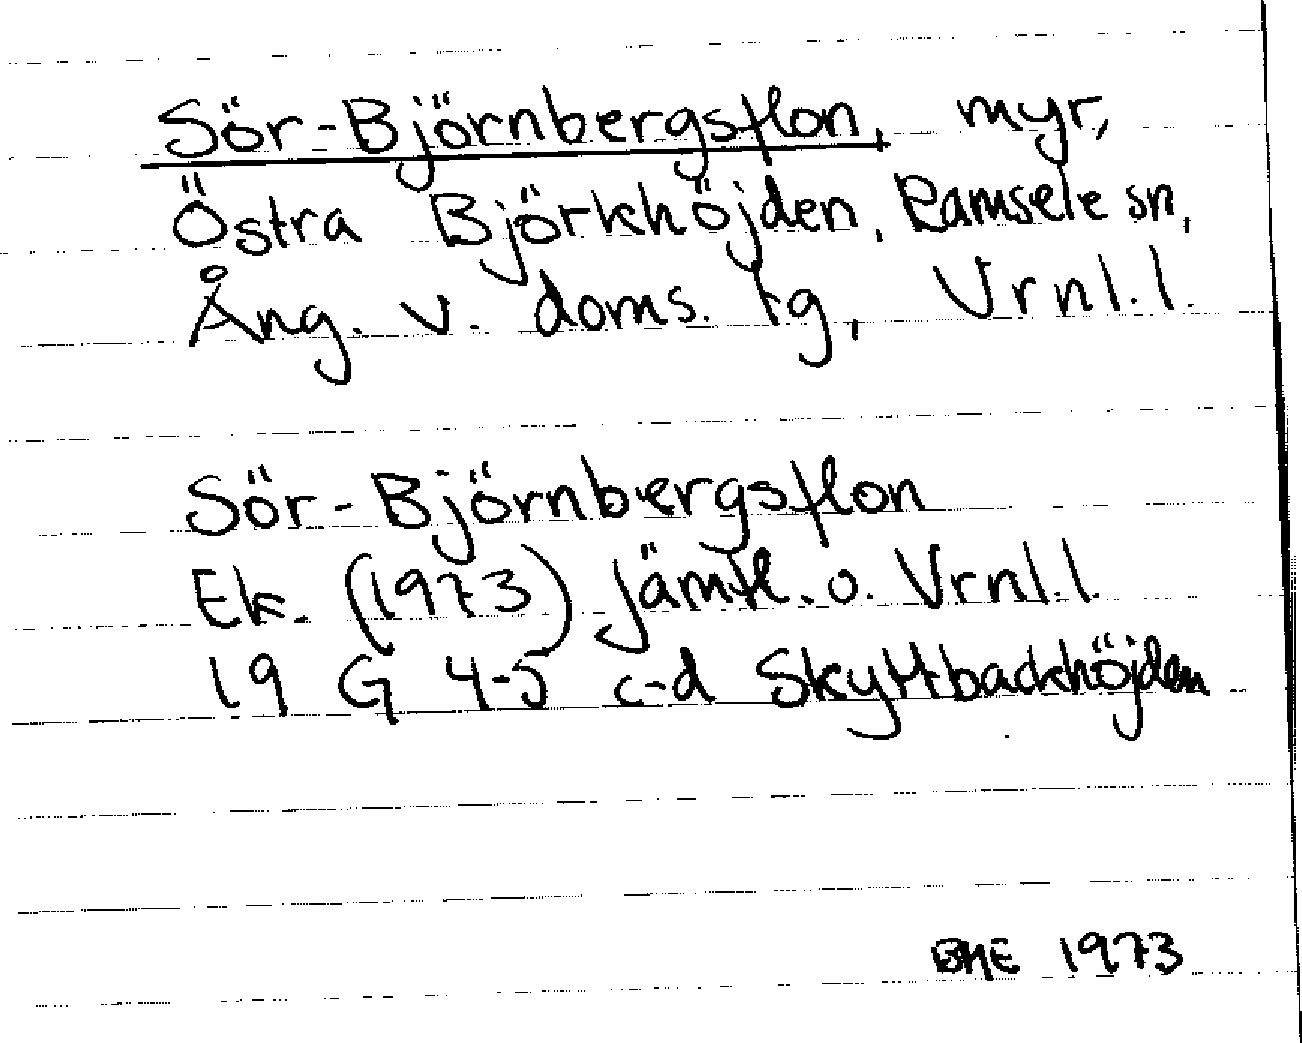 Sör-Björnbergsflon, myr,
Östra Björkhöjden, Ramsele sn,
Ång. v. doms. tg, Vrnl.l.
Sör-Björnbergsflon
Ek. (1973) Jämtl. o. Vrnl.l.
19 G 4-5 c-d Skyttbackhöjden
1973